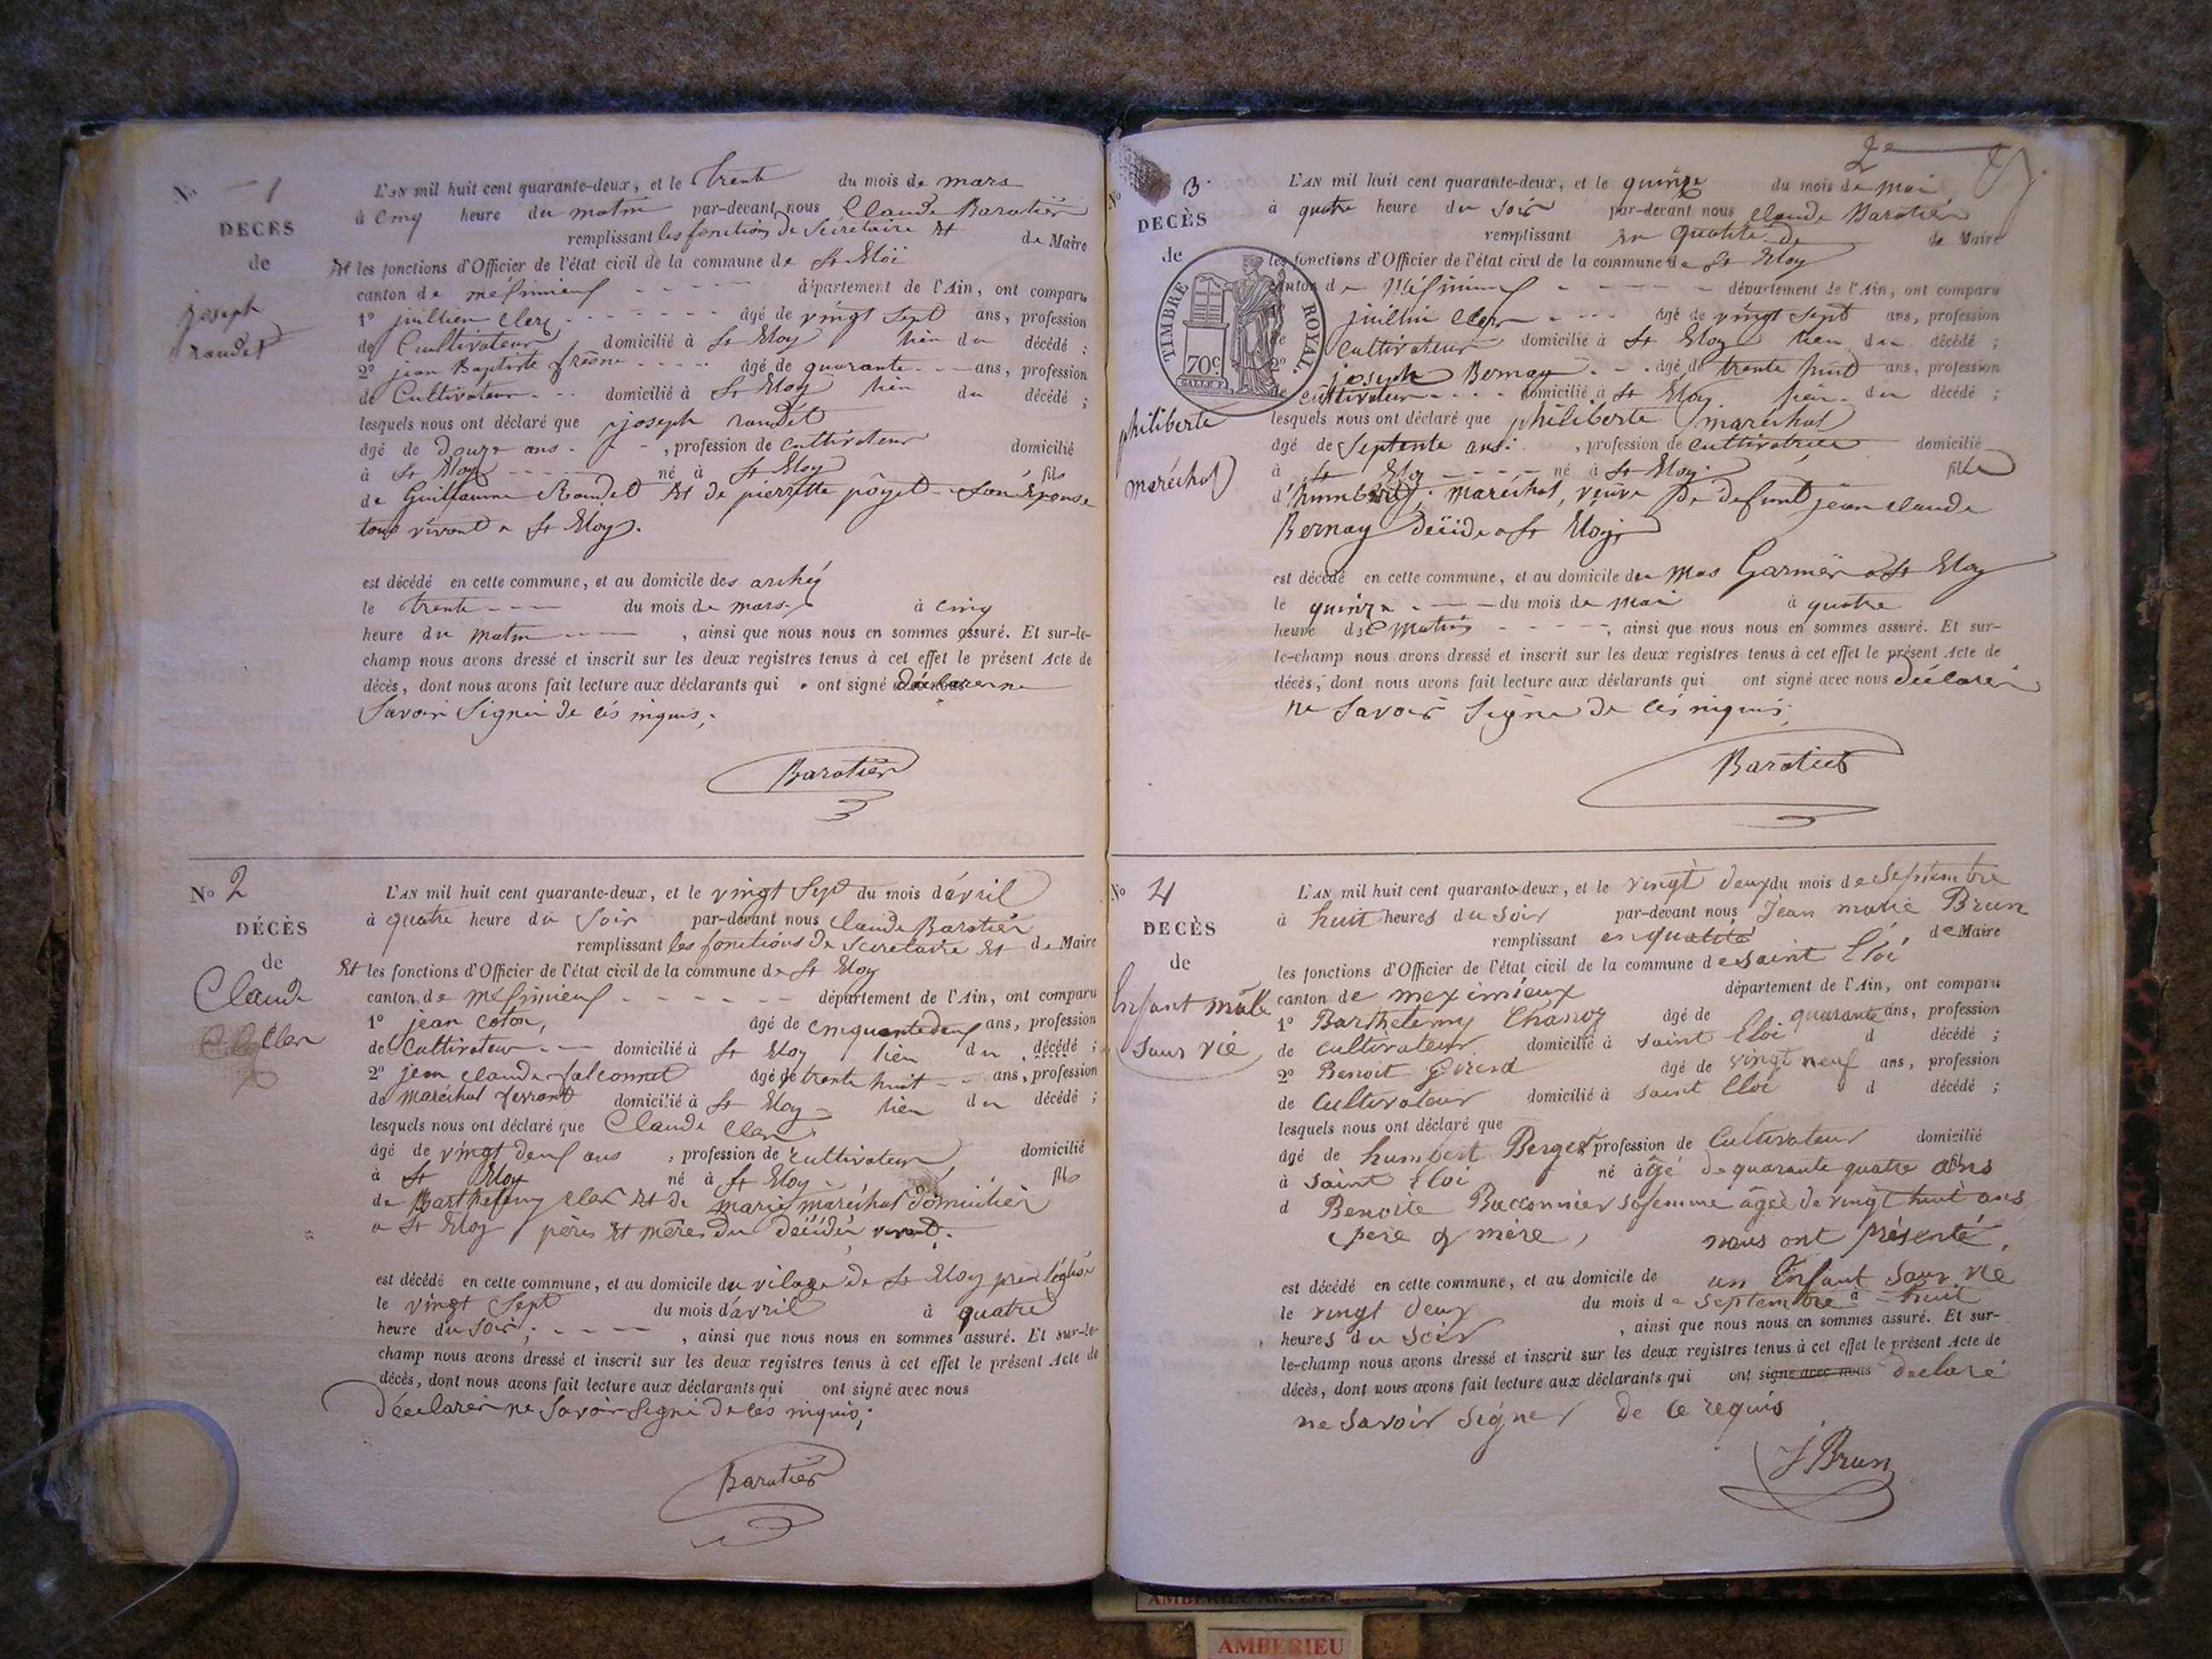 No 1
DECES
de
joseph
raudet
L'AN mil huit cent quarante-deux, et le trente du mois de mars
à cinq heure du matin par-devant nous Claude Baratier
remplissant les fonctions de Sécretaire Et de Maire
Et les fonctions d'Officier de l'état civil de la commune de St Eloi
canton de département de l'Ain, ont comparu
1º juillien Clerc âgé de vingt sept ans, profession
de Cultivateur domicilié à St Eloy lien du décédé ;
2º jean Baptiste âgé de quarante ans, profession
de Cultivateur domicilié à St Eloy lien du décédé ;
lesquels nous ont déclaré que joseph raudet
âgé de douze ans , profession de cultivateur domicilié
à St Eloy né à St Eloy fils
de Guillaume Raudet Et de pierrette son Epouse
tous vivant a St Eloy.
est décédé en cette commune, et au domicile des
le trente du mois de mars à cinq
heure du matin , ainsi que nous nous en sommes assuré. Et sur-le-
champ nous avons dressé et inscrit sur les deux registres tenus à cet effet le présent Acte de
décès, dont nous avons fait lecture aux déclarants qui ont signé ne
Savoir Signer de
Baratier
No 2
DÉCÈS
de
Claude
Clerc
L'AN mil huit cent quarante-deux, et le vingt Sept du mois d'avril
à quatre heure du Soir par-devant nous Claude Baratier
remplissant les fonctions de Secretaire Et de Maire
Et les fonctions d'Officier de l'état civil de la commune de St Eloy
canton de département de l'Ain, ont comparu
1º jean coton, âgé de cinquante deux ans, profession
de Cultivateur domicilié à St Eloy lien du décédé ;
2º jean claude falconnet âgé de trente huit ans, profession
de maréchal ferrant domicilié à St Eloy lien du décédé ;
lesquels nous ont déclaré que Claude Clerc
âgé de vingt deux ans , profession de cultivateur domicilié
à St Eloy né à St Eloy fils
de Barthelemy Clerc Et de marie maréchal domicilié
a St Eloy pères Et mères du vivant.
est décédé en cette commune, et au domicile du vilage de St Eloy pres l'église
le vingt Sept du mois d'avril à quatre
heure du Soir , ainsi que nous nous en sommes assuré. Et sur-le-
champ nous avons dressé et inscrit sur les deux registres tenus à cet effet le présent Acte de
décès, dont nous avons fait lecture aux déclarants qui ont signé avec nous
ne Savoir Signé de
Baratier
2e
No 3
DECÈS
de
TIMBRE ROYAL.
70c
philiberte
maréchal
L'AN mil huit cent quarante-deux, et le quinze du mois de mai
à quatre heure du soir par-devant nous Claude Baratier
remplissant en qualité de de Maire
les fonctions d'Officier de l'état civil de la commune de St Eloy
canton de département de l'Ain, ont comparu
juillien Clerc âgé de vingt sept ans, profession
de cultivateur domicilié à St Eloy lien du décédé ;
2º joseph Bernay âgé de trente huit ans, profession
de cultivateur domicilié à St Eloy lien du décédé ;
lesquels nous ont déclaré que philiberte maréchal
âgé de Septente ans , profession de cultivatrice domicilié
à St Eloy né à St Eloy fille
d' maréchal, veuve de defunt jean claude
Bernay a St Eloy
est décédé en cette commune, et au domicile du mas Garnier a St Eloy
le quinze du mois de mai à quatre
heure du matin , ainsi que nous nous en sommes assuré. Et sur-
le-champ nous avons dressé et inscrit sur les deux registres tenus à cet effet le présent Acte de
décès, dont nous avons fait lecture aux déclarants qui ont signé avec nous
ne savoir Signé de
Baratier
No 4
DECÈS
de
Enfant mâle
sans vie
L'AN mil huit cent quarante-deux, et le vingt deux du mois de septembre
à huit heures du soir par-devant nous Jean marie Brun
remplissant en qualité de Maire
les fonctions d'Officier de l'état civil de la commune de saint Eloi
canton de meximieux département de l'Ain, ont comparu
1º Barthelemy Chanoz âgé de quarante ans, profession
de cultivateur domicilié à saint Eloi d décédé ;
2º Benoit Girerd âgé de vingt neuf ans, profession
de cultivateur domicilié à saint Eloi d décédé ;
lesquels nous ont déclaré que
âgé de humbert Berger profession de Cultivateur domicilié
à saint Eloi né âgé de quarante quatre ans
d Benoite Baconnier sa femme âgée de vingt huit ans
père & mère, nous ont présenté,
est décédé en cette commune, et au domicile de un Enfant sans vie
le vingt deux du mois de septembre à huit
heures du soir , ainsi que nous nous en sommes assuré. Et sur-
le-champ nous avons dressé et inscrit sur les deux registres tenus à cet effet le présent Acte de
décès, dont nous avons fait lecture aux déclarants qui ont signé avec nous declaré
ne savoir signer de ce requis
J Brun
AMBERIEU
AMBERIEU